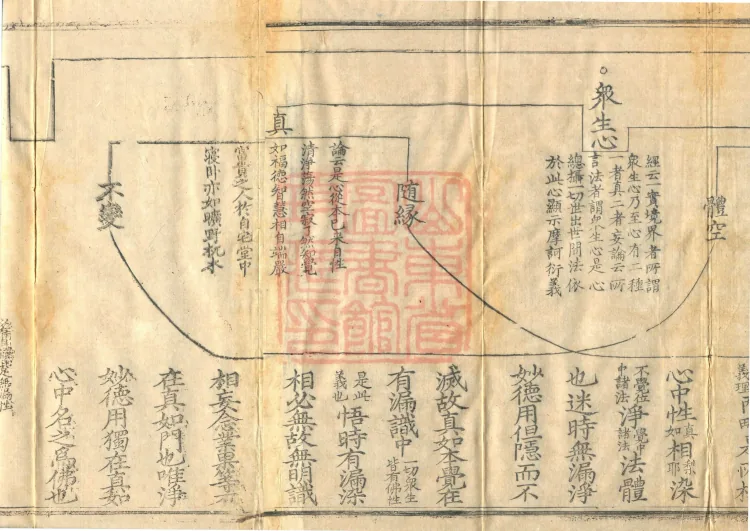 眾生心
經云一實境界者所謂
眾生心乃至心有二種
一者真二者妄論云所
言法者謂眾生心是心
總攝一切世出世間法依
於此心顯示摩訶衍義
體空
隨緣
真
論云是心從本已來自性
清淨
如福德智慧相自端嚴
富貴之人於自宅堂中
寢卧亦如曠野枕木
不變
心中性真如相染
不覺在中諸法淨覺中諸法法體
也迷時無漏淨
妙德用但隱而不
滅故真如本覺在
有漏識中一切眾生皆有佛性
是此義也悟時有漏染
相必無故無明識
相妄念
在真如門也唯淨
妙德用獨在真如
心中名之為佛也